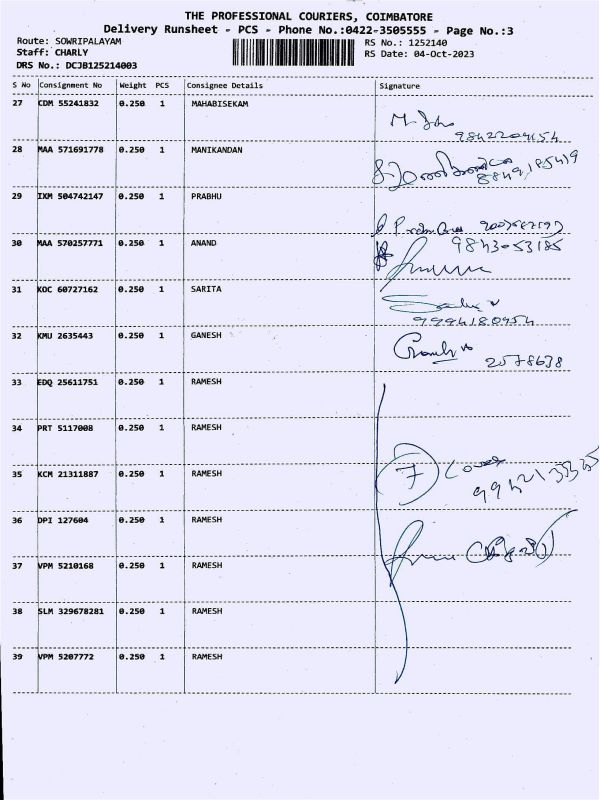 THE PROFESSIONAL COURIERS, COIMBATORE
Delivery Runsheet - PCS - Phone No.:0422-3505555 - Page No.:3
Route: SOWRIPALAYAM RS No.: 1252140
Staff: CHARLY RS Date: 04-Oct-2023
DRS No.: DCJB125214003
S No Consignment No Weight PCS Consignee Details Signature
27 CDM 55241832 0.250 1 MAHABISEKAM
9842204154
28 MAA 571691778 0.250 1 MANIKANDAN
29 IXM 504742147 0.250 1 PRABHU
30 MAA 570257771 0.250 1 ANAND 9843053185
31 KOC 60727162 0.250 1 SARITA
9994180954
32 KMU 2635443 0.250 1 GANESH
2578638
33 EDQ 25611751 0.250 1 RAMESH
34 PRT 5117008 0.250 1 RAMESH
35 KCM 21311887 0.250 1 RAMESH 7 Cover
36 DPI 127604 0.250 1 RAMESH
37 VPM 5210168 0.250 1 RAMESH
38 SLM 329678281 0.250 1 RAMESH
39 VPM 5207772 0.250 1 RAMESH